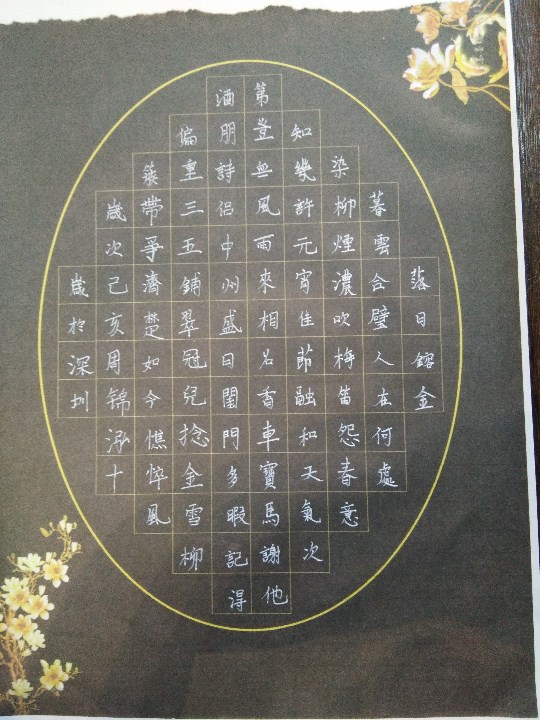 落日鎔金
暮雲合璧人在何處
染柳煙濃吹梅笛怨春意
知幾許元宵佳節融和天氣次
第豈無風雨來相召香車寶馬謝他
酒朋詩侶中州盛日閨門多暇記得
偏重三五鋪翠冠兒捻金雪柳
簇帶爭濟楚如今憔悴風
歲次己亥周錦泓十
歲於深圳